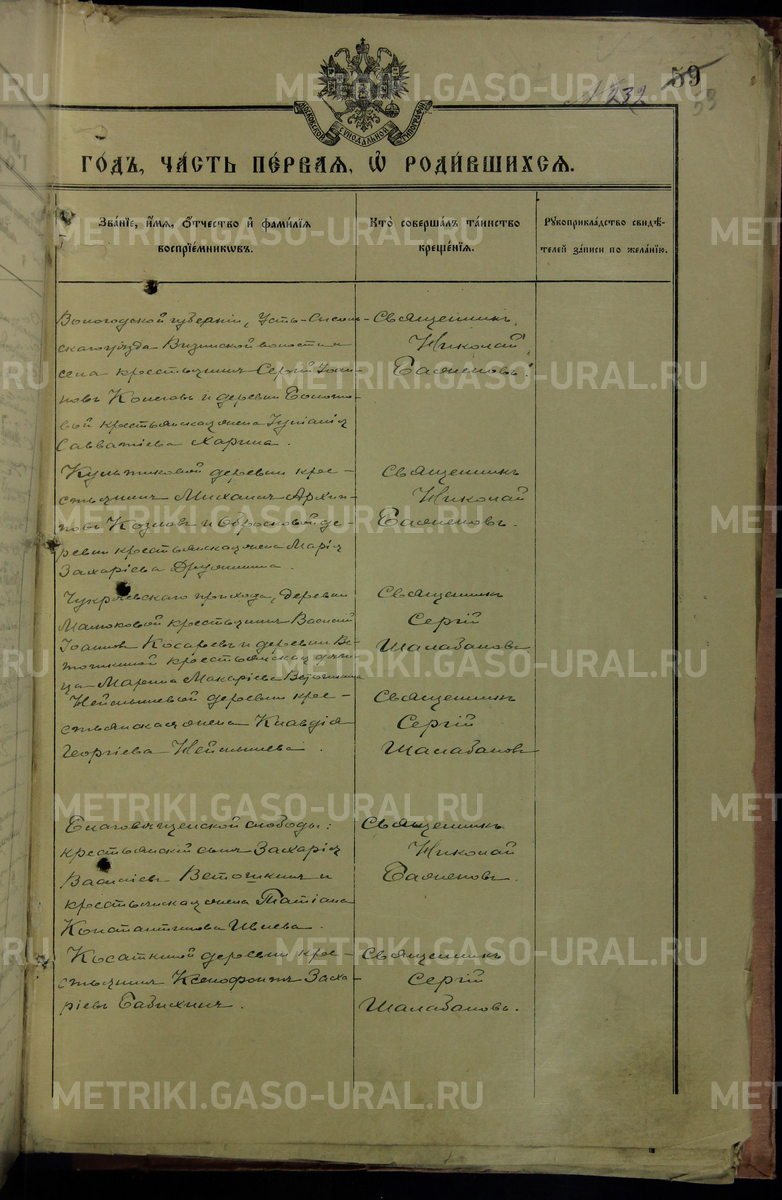 59
232
59
МОСКОВСКОЙ СѴНОДАЛЬНОЙ ТИПОГРАФІИ
ГОДЪ, ЧАСТЬ ПЕРВАЯ, Ѡ РОДИВШИХСЯ.
Званіе, имя, отчество и фамилія воспріемниковъ.
Кто совершалъ таинство крещенія.
Рукоприкладство свидѣтелей записи по желанію.
Вологодской губерніи, Усть-Сысоль-
скаго уѣзда Визинской волости и
села крестьянинъ Сергій
новъ и деревни
вой крестьянская жена
Савватіева Харина.
Священникъ
Николай
Баженовъ.
деревни крес-
стьянинъ Михаилъ Архип-
повъ Козловъ и Обросковой де-
ревни крестьянская жена Марія
Захаріева Дружинина.
Священникъ
Николай
Баженовъ.
прихода, деревни
крестьянинъ Василій
Іоанновъ Косаревъ и деревни Ве-
тошкиной крестьянская дѣви-
ца Марина Макаріева Ветошкина
Священникъ
Сергій
Шалабановъ
Нейпышевой деревни крес-
стьянская жена Клавдія
Георгіева Нейпышева.
Священникъ
Сергій
Шалабановъ
Благовѣщенской слободы:
крестьянскій сынъ Захарія
Василіевъ Ветошкинъ и
крестьянская жена Татіана
Константинова Ивлева.
Священникъ
Николай
Баженовъ.
Косаткиной деревни крес-
стьянинъ Ксенофонтъ Заха-
ріевъ Бабихинъ.
Священникъ
Сергій
Шалабановъ.
METRIKI.GASO-URAL.RU